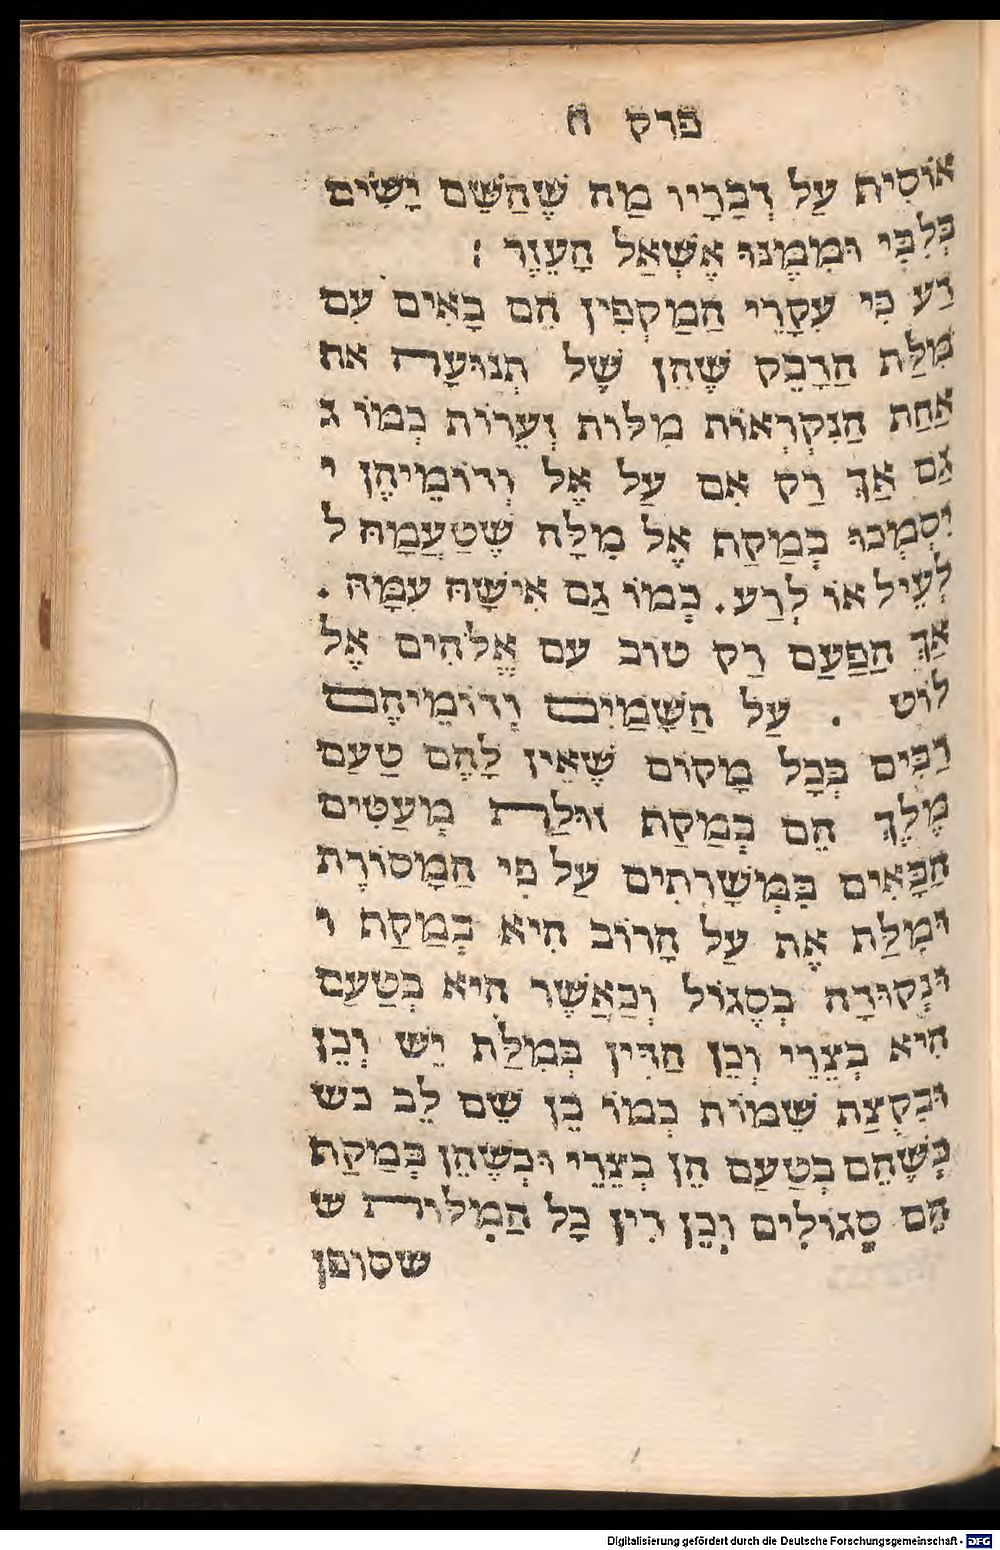 פרק ח
אוֹסִית עַל דְבָרָיו מַה שֶׁהַשֵּׁם יָשִׂים
בְּלִבִּי וּמִמֶנּוּ אֶשְׁאַל הָעֵזֶר :
דַע כִי עִקָרֵי הַמַקְפִין הֵם בָאִים עִם
מִלַּת הַדָבֵק שֶׁהֵן שֶׁל תְנוּעָה את
אַחַת הַנִקְרְאוֹת מִלּוֹת זְעֵרוֹת כְמוֹ ג
גַם אַךְ רַק אִם עַל אֶל וְדוֹמֵיהֶן י
יִסְמְכוּ בְמַקַת אֶל מִלָּה שֶׁטַעֲמָהּ ל
לְעֵיל אוֹ לְרַע . כְמוֹ גַם אִישָׁהּ עִמָּהּ .
אַךְ הַפַעַם רַק טוֹב עִם אֱלֹהִים אֶל
לוֹט . עַל הַשָּׁמַיִם וְדוֹמֵיהֶם
רַבִּים בְּכָל מָקוֹם שֶׁאֵין לָהֶם טַעַם
מֶלֶךְ הֵם בְמַקַת זוּלַת מְעַטִּים
הַבָּאִים בִּמְשָׁרְתִים עַל פִי הַמָסוֹרֶת
וּמִלַּת אֶת עַל הָרוֹב הִיא בְמַקַת ו
וּנְקוּדָה בְסֶגוֹל וְכַאֲשֶׁר הִיא בְּטַעַם
הִיא בְצֵרֵי וְכֵן הַדִּין בְּמִלַּת יֵשׁ וְכֵן
וּבִקְצַת שֵׁמוֹת כְמוֹ בֵן שֵׁם לֵב כש
כְּשֶׁהֵם בְטַעַם הֵן בְצֵרֵי וּכְשֶׁהֵן בְּמַקַת
הֵם סְגוֹלִים וְכֵן דִין כָל הַמִלּוֹת ש
שסופן
Digitalisierung gefördert durch die Deutsche Forschungsgemeinschaft - DFG